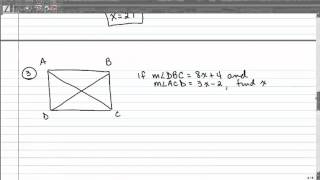 x=21
3
A
B
If m∠DBC = 8x+4 and
m∠ACD = 3x-2, find x
D
C